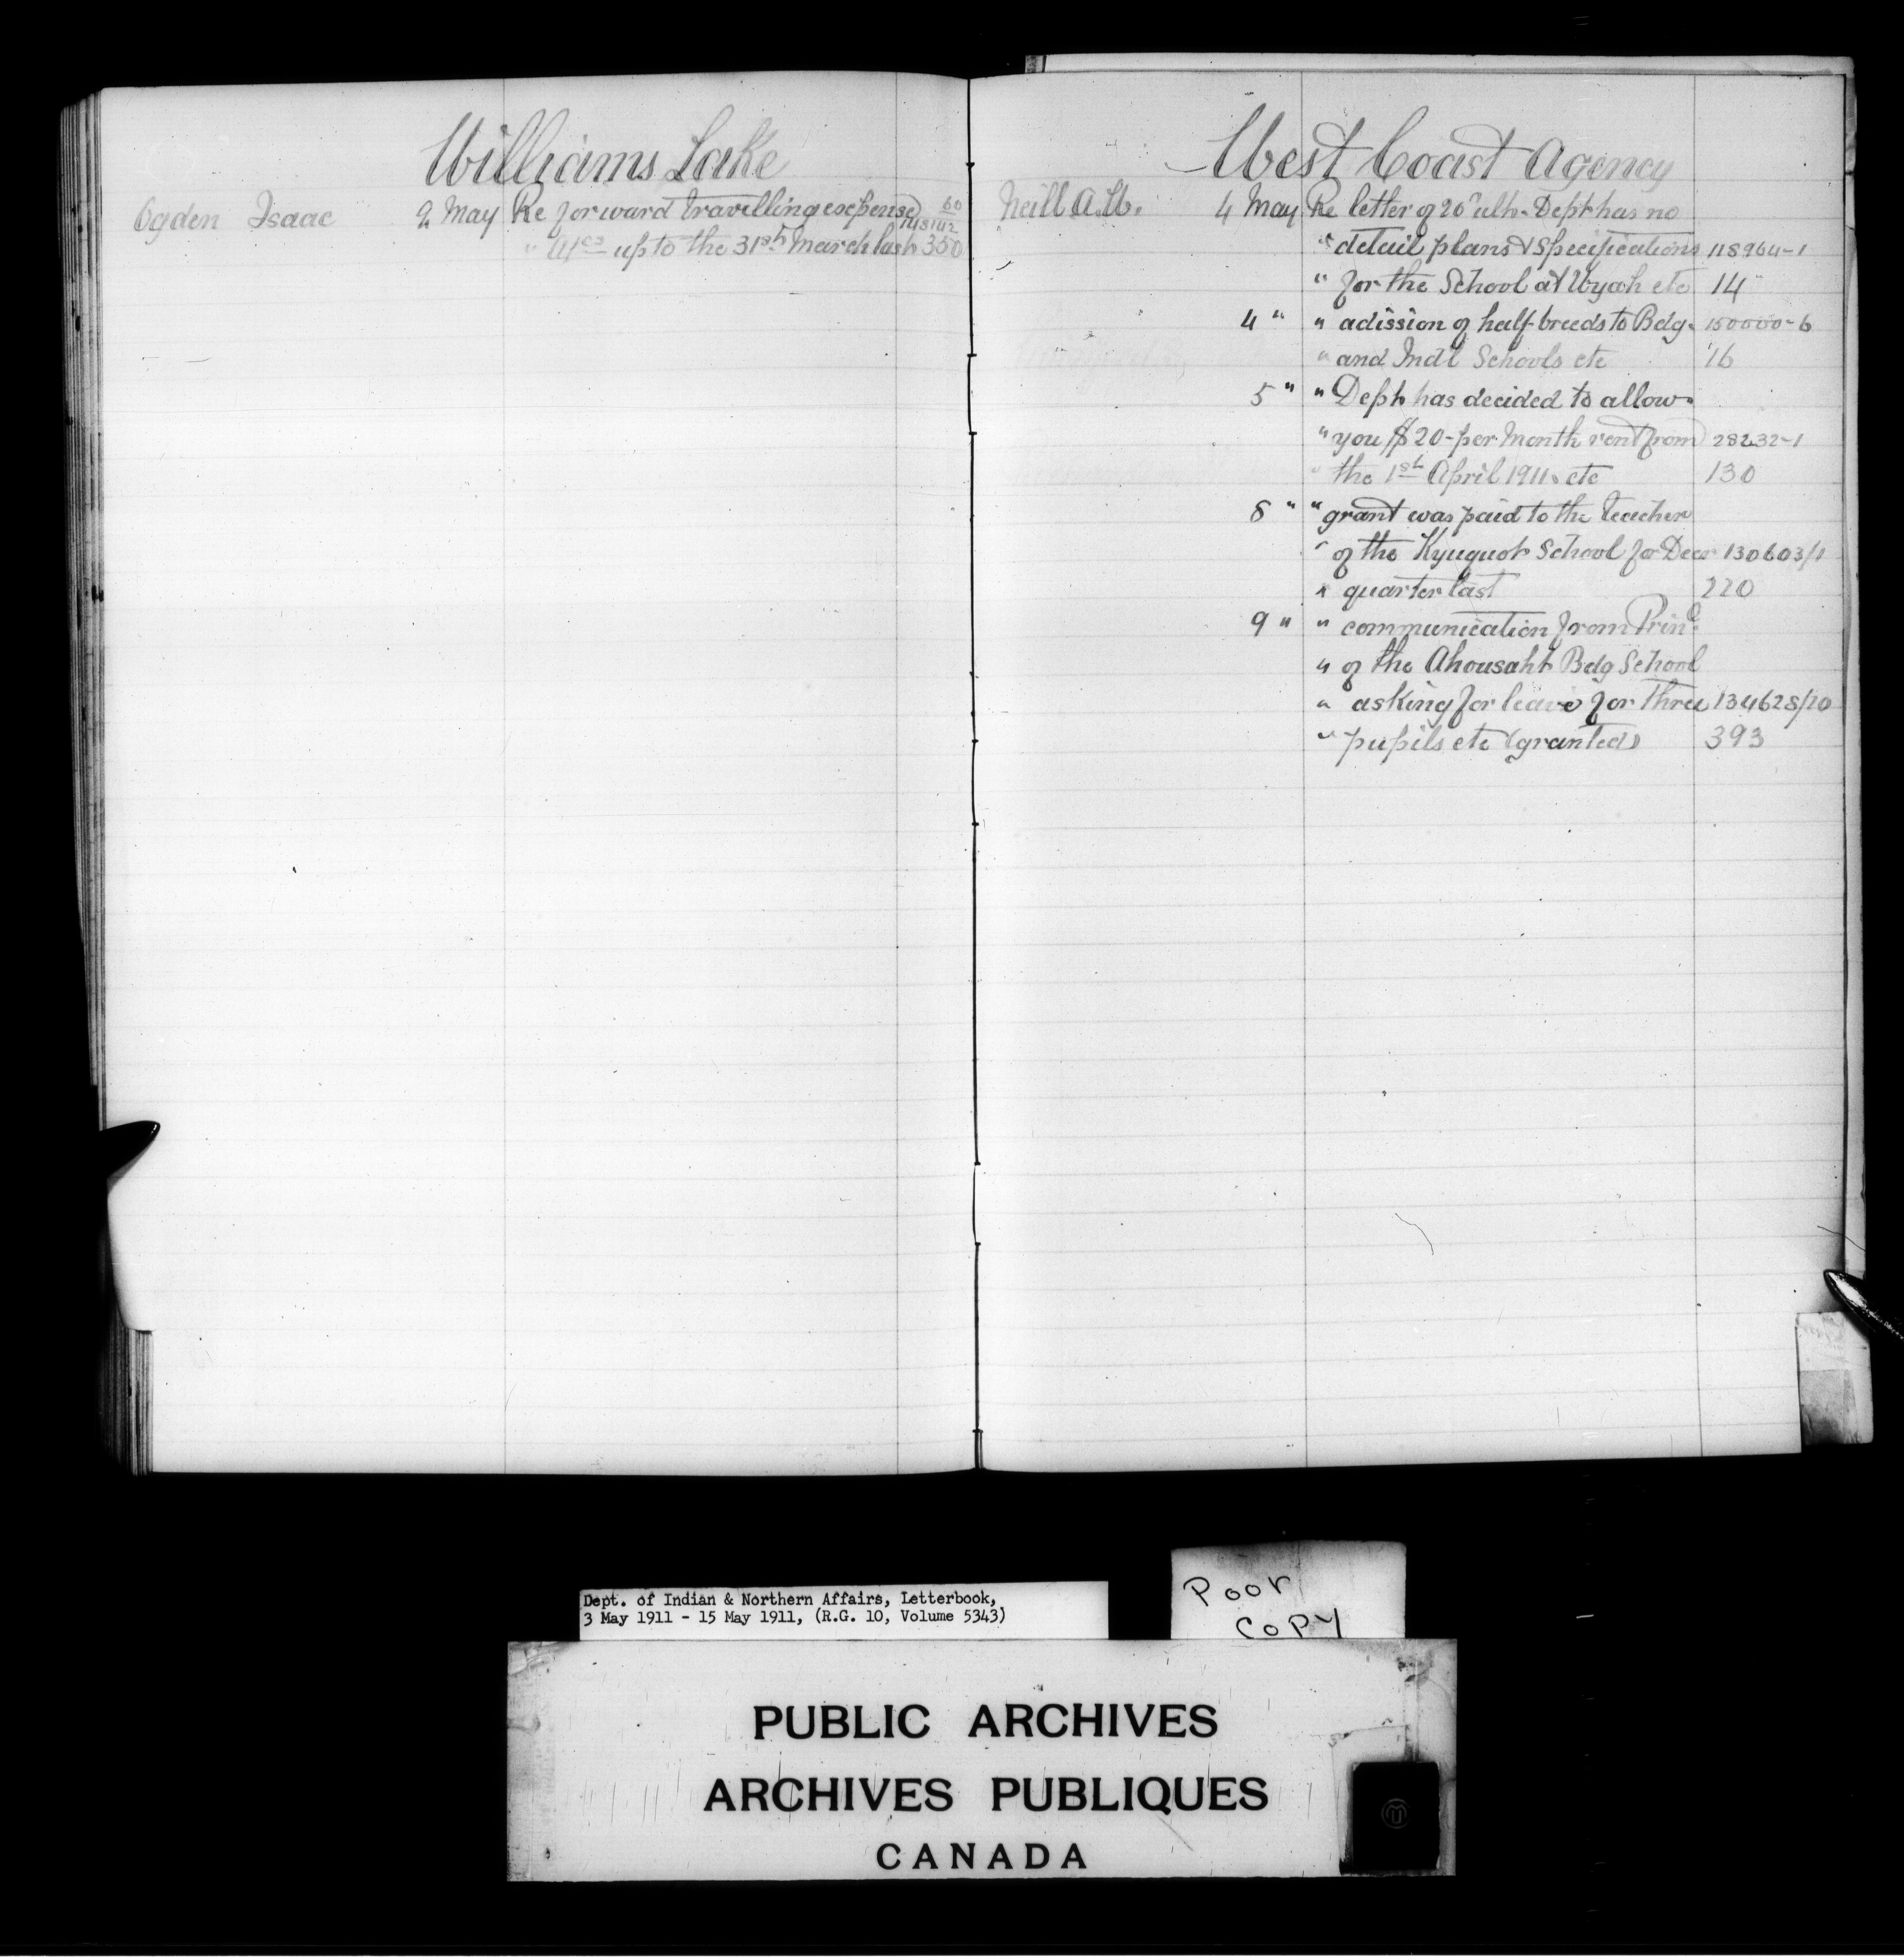 Williams Lake
Ogden Isaac 9 May Re forward travelling expense 60
" a/cs up to the 31st March last 350
West Coast Agency
Neill A.W. 4 May Re letter of 20" ulto. Dept has no
" detail plans & specifications 118964-1
" for the School at Wyah etc 14
4 " " adission of half-breeds to Bdg. 150000-6
" and Indl Schools etc 16
5 " " Dept has decided to allow
" you $20- per Month rent from 28232-1
" the 1st April 1911. etc 130
8 " " grant was paid to the teacher
" of the Kyuquot School for Decr 130603/1
" quarter last 220
9 " " communication from Prinl
" of the Ahousaht Bdg School
" asking for leave for three 134628/20
" pupils etc (granted) 393
Dept. of Indian & Northern Affairs, Letterbook,
3 May 1911 - 15 May 1911, (R.G. 10, Volume 5343)
Poor
Copy
PUBLIC ARCHIVES
ARCHIVES PUBLIQUES
CANADA